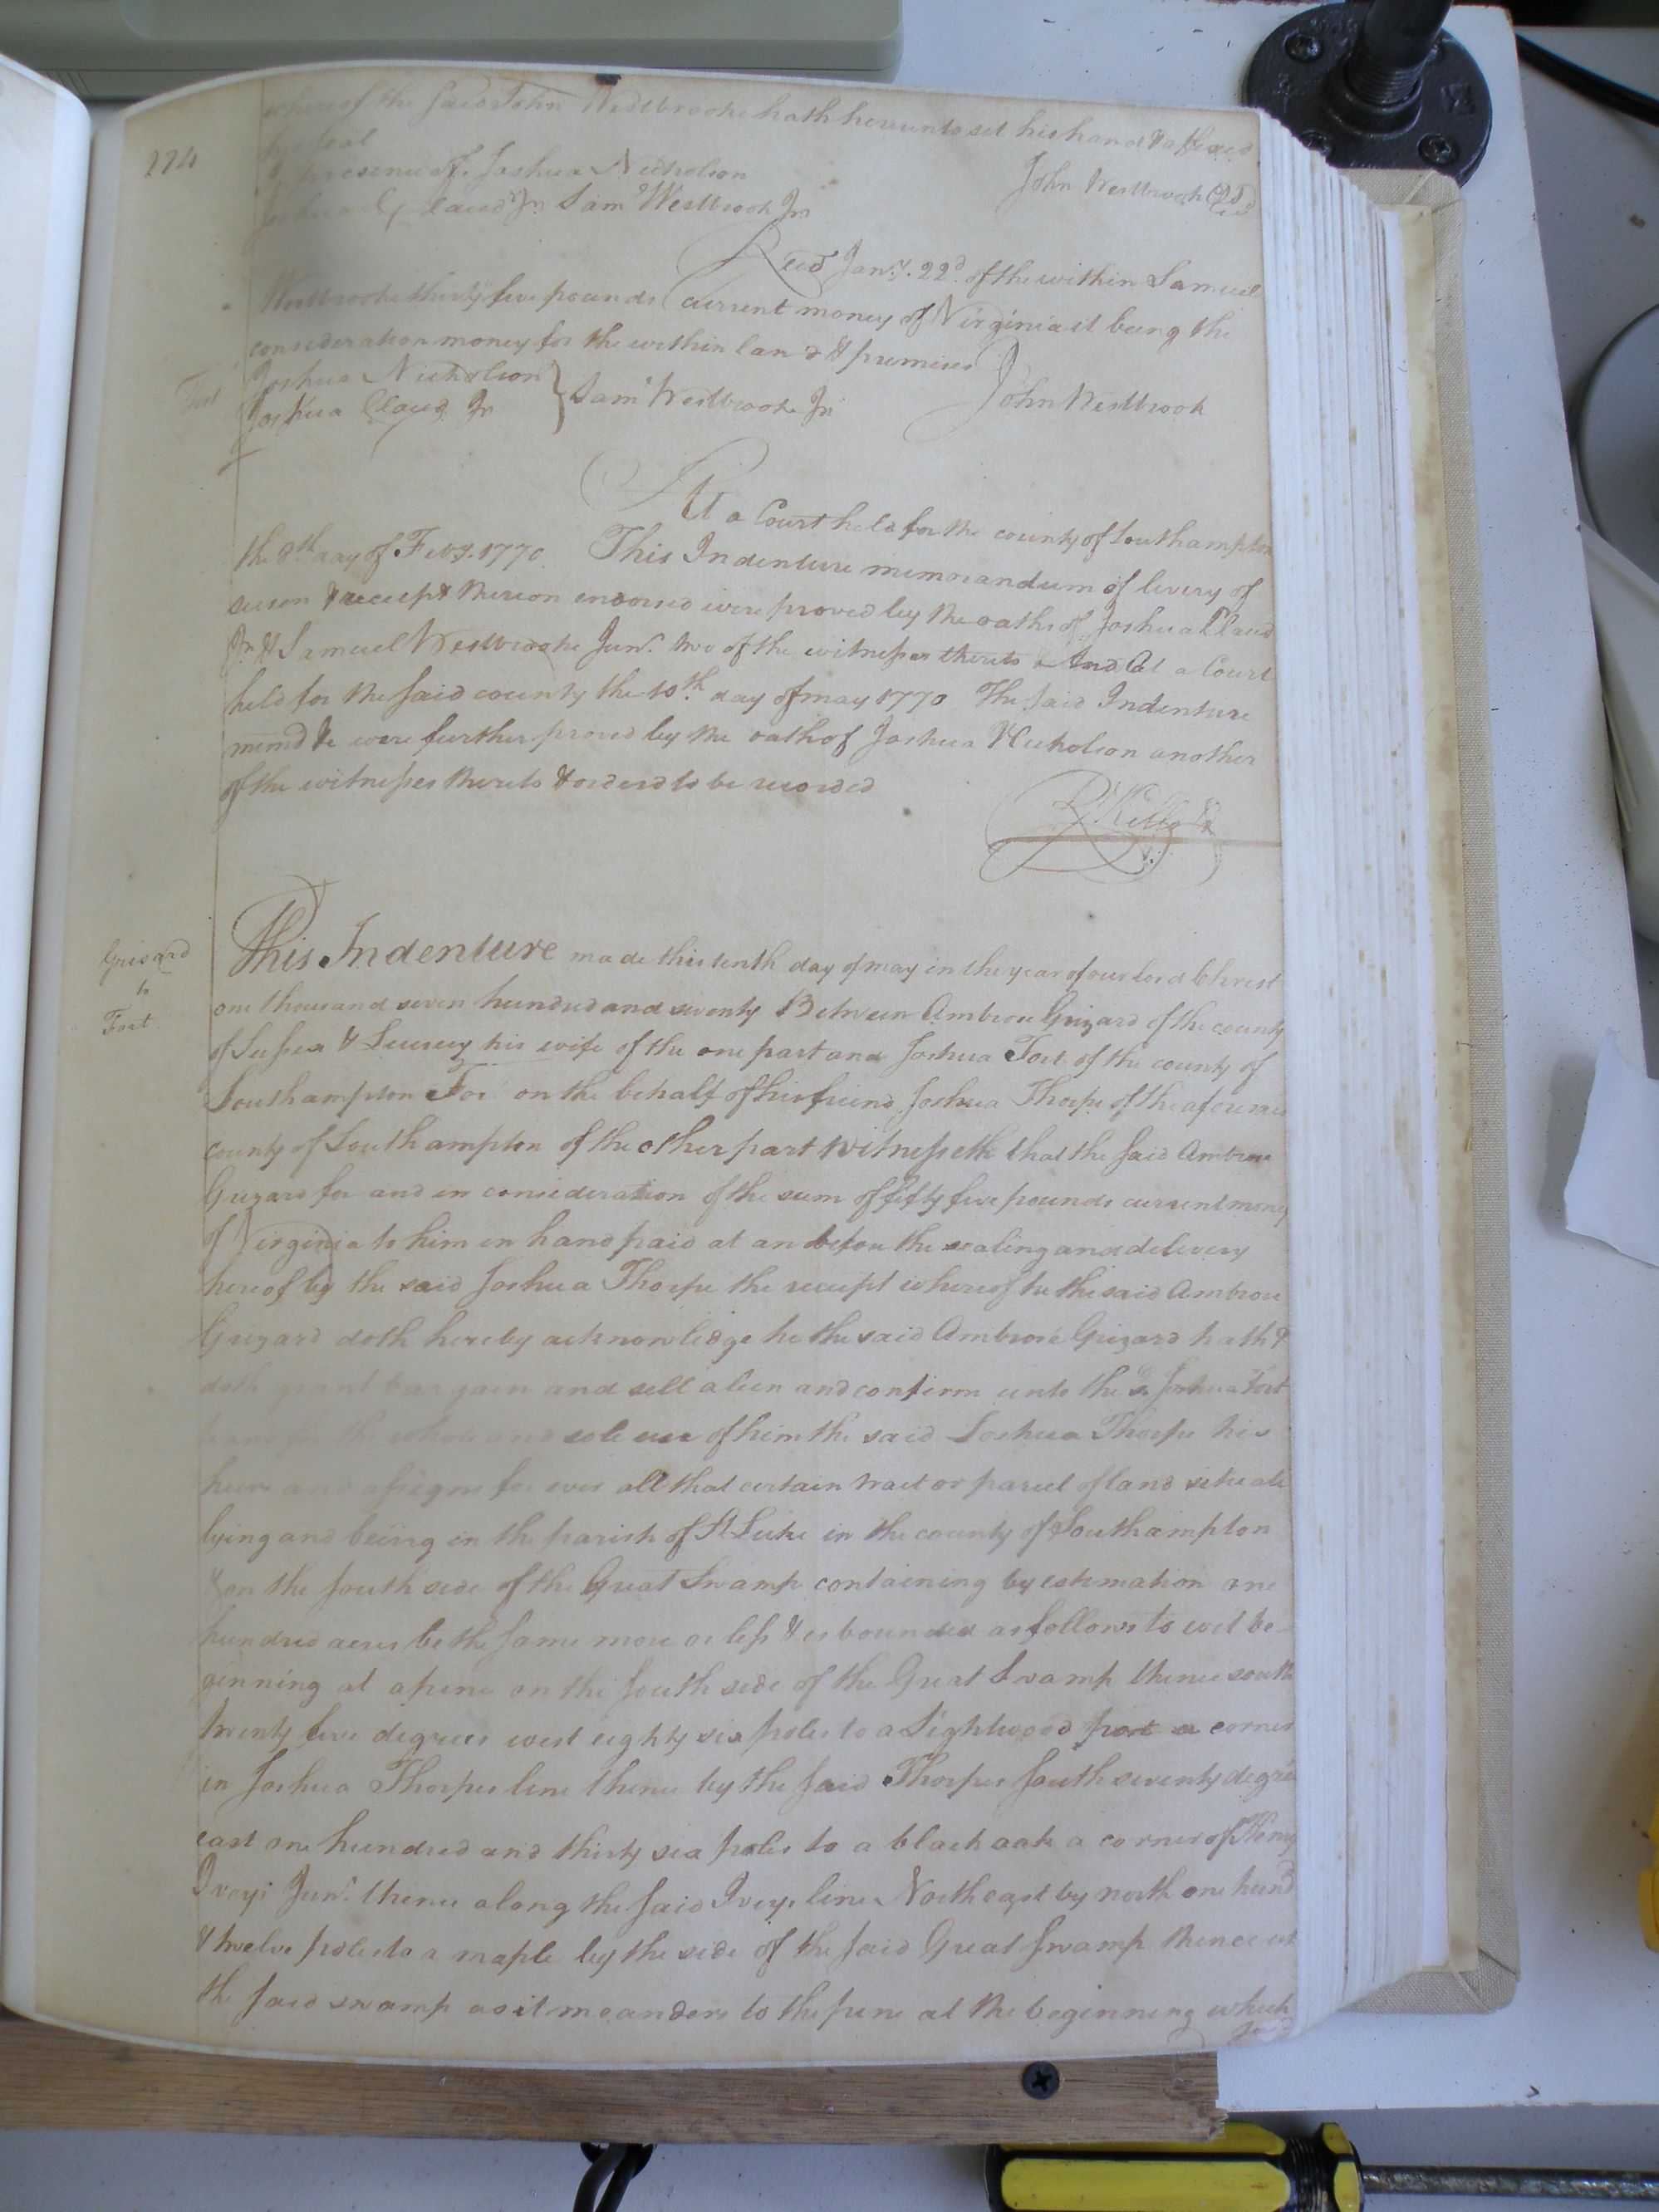 174
whereof the said John Westbrooke hath hereunto set his hand & affixed
his seal
In presence of Joshua Nicholson
John Westbrook
Joshua Claud Jr. Sam Westbrook Jr
Recd Jany. 22d of the within Samuel
Westbrooke thirty five pounds current money of Virginia it being the
consideration money for the within land & premises
Test
Joshua Nicholson
Joshua Claud Jr
Saml Westbrooke Jr
John Westbrook
At a Court held for the county of Southampton
the 8th day of Feby. 1770 This Indenture memorandum of livery of
seisen & receipt thereon endorsed were proved by the oaths of Joshua Claud
Jr & Samuel Westbrooke Junr. two of the witnesses thereto And At a Court
held for the said county the 10th day of may 1770 The said Indenture
memd &c were further proved by the oath of Joshua Nicholson another
of the witnesses thereto & orderd to be recorded
Grizard
to
Fort
This Indenture made this tenth day of may in the year of our lord Christ
one thousand seven hundred and seventy Between Ambrose Grizard of the county
of Sussex & his wife of the one part and Joshua Fort of the county of
Southampton For on the behalf of his friend Joshua Thorpe of the aforesaid
county of Southampton of the other part Witnesseth that the said Ambrose
Grizard for and in consideration of the sum of fifty five pounds current money
of Virginia to him in hand paid at an before the sealing and delivery
hereof by the said Joshua Thorpe the receipt whereof he the said Ambrose
Grizard doth hereby acknowledge he the said Ambrose Grizard hath &
doth grant bargain and sell alien and confirm unto the sd Joshua Fort
for the whole and sole use of him the said Joshua Thorpe his
heirs and assigns for ever all that certain tract or parcel of land situate
lying and being in the parish of St Luke in the county of Southampton
& on the south side of the Great Swamp containing by estimation one
hundred acres be the same more or less & is bounded as follows to wit be
ginning at a pine on the south side of the Great Swamp thence south
twenty five degrees west eighty six poles to a Lightwood post a corner
in Joshua Thorpes line thence by the said Thorpes south seventy degrees
east one hundred and thirty six poles to a black oak a corner of Henry
Iveys Junr. thence along the said Iveys line North east by north one hund
& twelve poles to a maple by the side of the said Great Swamp thence up
the said swamp as it meanders to the pine at the beginning which